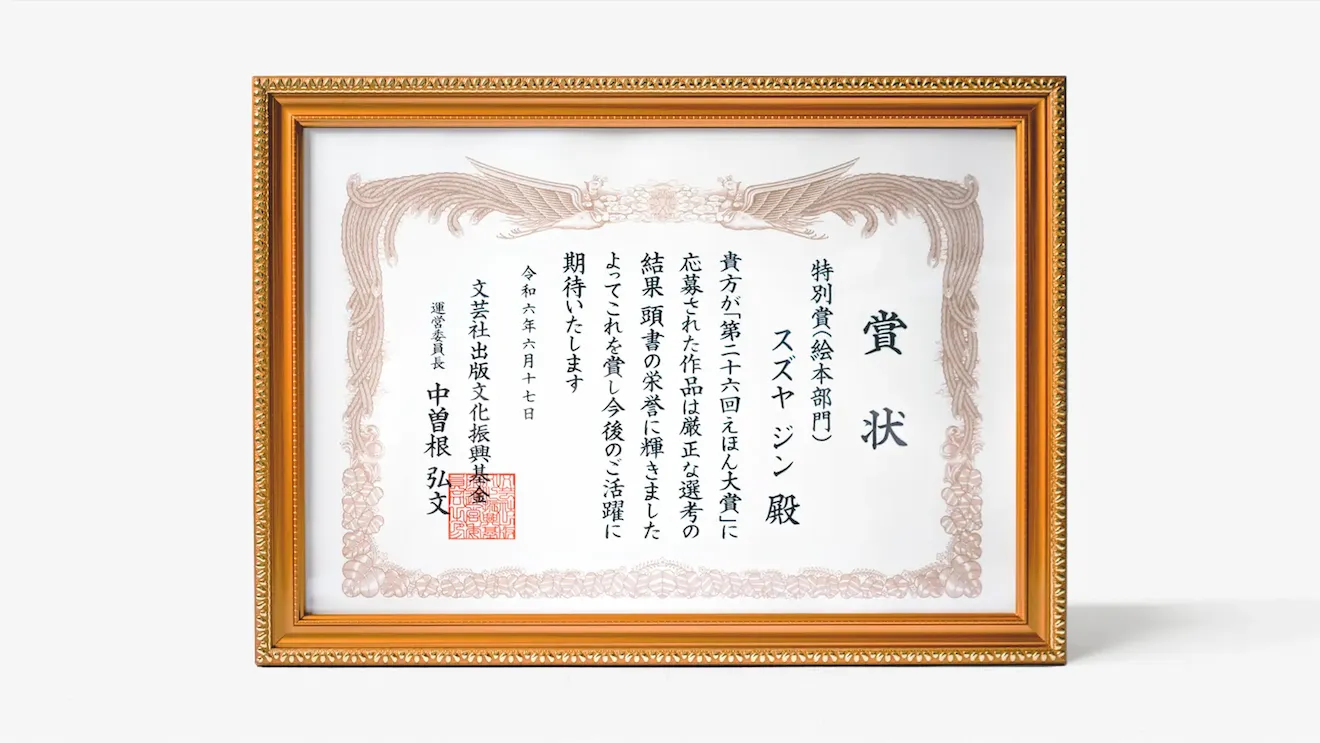 賞状
特別賞(絵本部門)
スズヤ ジン 殿
貴方が「第二十六回えほん大賞」に
応募された作品は厳正な選考の
結果 頭書の栄誉に輝きました
よってこれを賞し今後のご活躍に
期待いたします
令和六年六月十七日
文芸社出版文化振興基金
運営委員長 中曽根 弘文